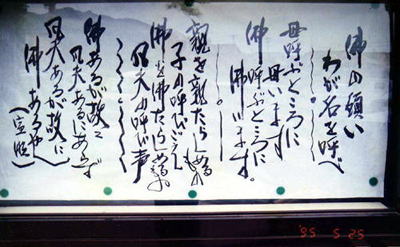 佛の願い
わが名を呼べ
母呼ぶところに
母います
佛呼ぶところに
佛います。
親を親たらしめるもの
子の呼び声
佛を佛たらしめるもの
凡夫の呼び声
佛あるが故に
凡夫あるにあらず
凡夫あるが故に
佛あるや
'95 5 25